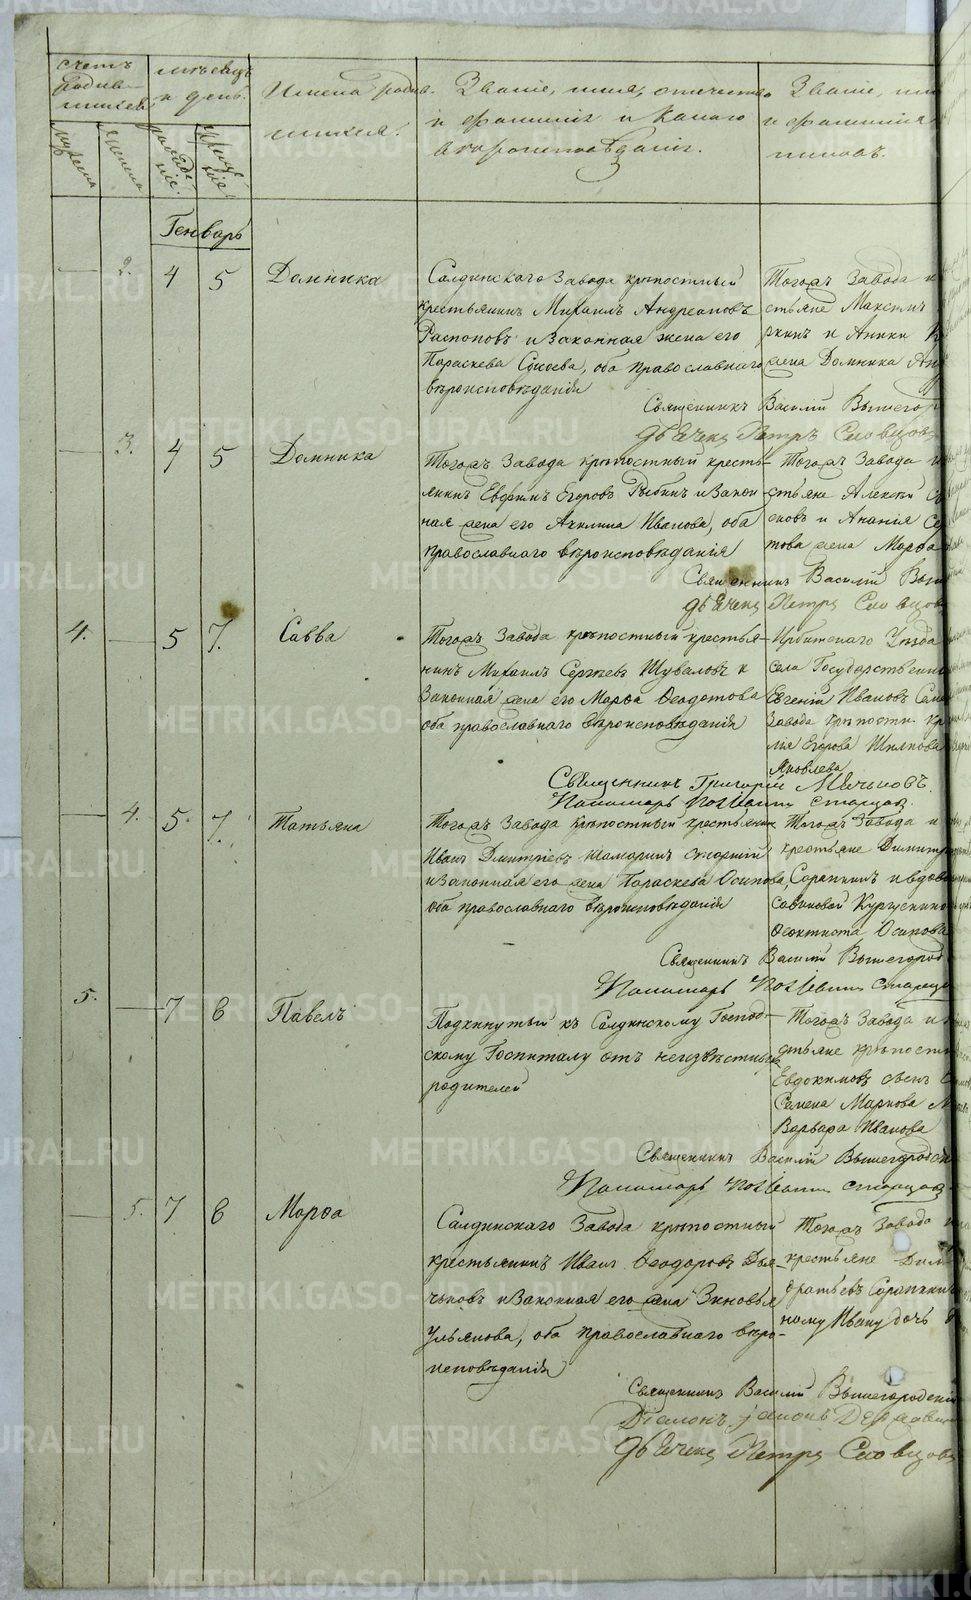 счетъ родив- шихся
мѣсяцъ и день.
Имена родив- шихся.
Званіе, имя, отечество и фамилія и какого вѣроисповѣданія.
Званіе,
и фамилія
мужеска
женска
рожде- нія.
креще- нія.
Генварь
2. 4 5 Домника
Салдинскаго Завода крѣпостный
крестьянинъ Михаилъ Андреановъ
Распоповъ и законная жена его
Параскева Сысоева, оба православнаго
вѣроисповѣданія
Тогожъ Завода
стьяне Максим
и Аники
жена Домника
Священникъ Василій Вышегор
дьячекъ Петръ Словцовъ
3. 4 5 Домника
Тогожъ Завода крѣпостный кресть-
янинъ Евфимъ Егоровъ Рыбинъ и закон-
ная жена его Акилина Иванова, оба
православнаго вѣроисповѣданія
Тогожъ Завода
стьяне Алексѣй
и Ананія
това жена Марфа
Священникъ Василій Выш
дьячекъ Петръ Словцовъ
4. 5 7. Савва
Тогожъ Завода крѣпостный крестья-
нинъ Михаилъ Сергѣевъ Шуваловъ и
законная жена его Марфа Феодотова
оба православнаго вѣроисповѣданія
Ирбитскаго Уѣзда
села Государственно
Евгеній Ивановъ
Завода крѣпостн. кр
Егорова
Яковлева
Священникъ Григорій
Пономарь Старцов.
4. 5. 7. Татьяна
Тогожъ Завода крѣпостный крестьянин
Иванъ Дмитріевъ Шамаринъ старшій
и законная его жена Параскева Осипова,
оба православнаго вѣроисповѣданія
Тогожъ Завода и
крестьяне Димитр
и вдова
Феоктиста Осипова
Священникъ Василій Вышегород
Пономарь Старцо
5. 7 8 Павелъ
Подкинутый къ Салдинскому Господ-
скому Госпиталу отъ неизвѣстныхъ
родителей
Тогожъ Завода и
стьяне крѣпостн
Евдокимовъ
Семена Маркова
Варвара Иванова
Священникъ Василій Вышегородск
Пономарь Старцов
5. 7 8 Марфа
Салдинскаго Завода крѣпостный
крестьянинъ Иванъ Феодоровъ Дья-
чковъ и законная его жена Зиновья
Ульянова, оба православнаго вѣро-
исповѣданія
Тогожъ Завода
крестьяне Дим
ному Ивану дочь
Священникъ Василій Вышегородскій
Діаконъ
дьячекъ Петръ Словцовъ
METRIKI.GASO-URAL.RU